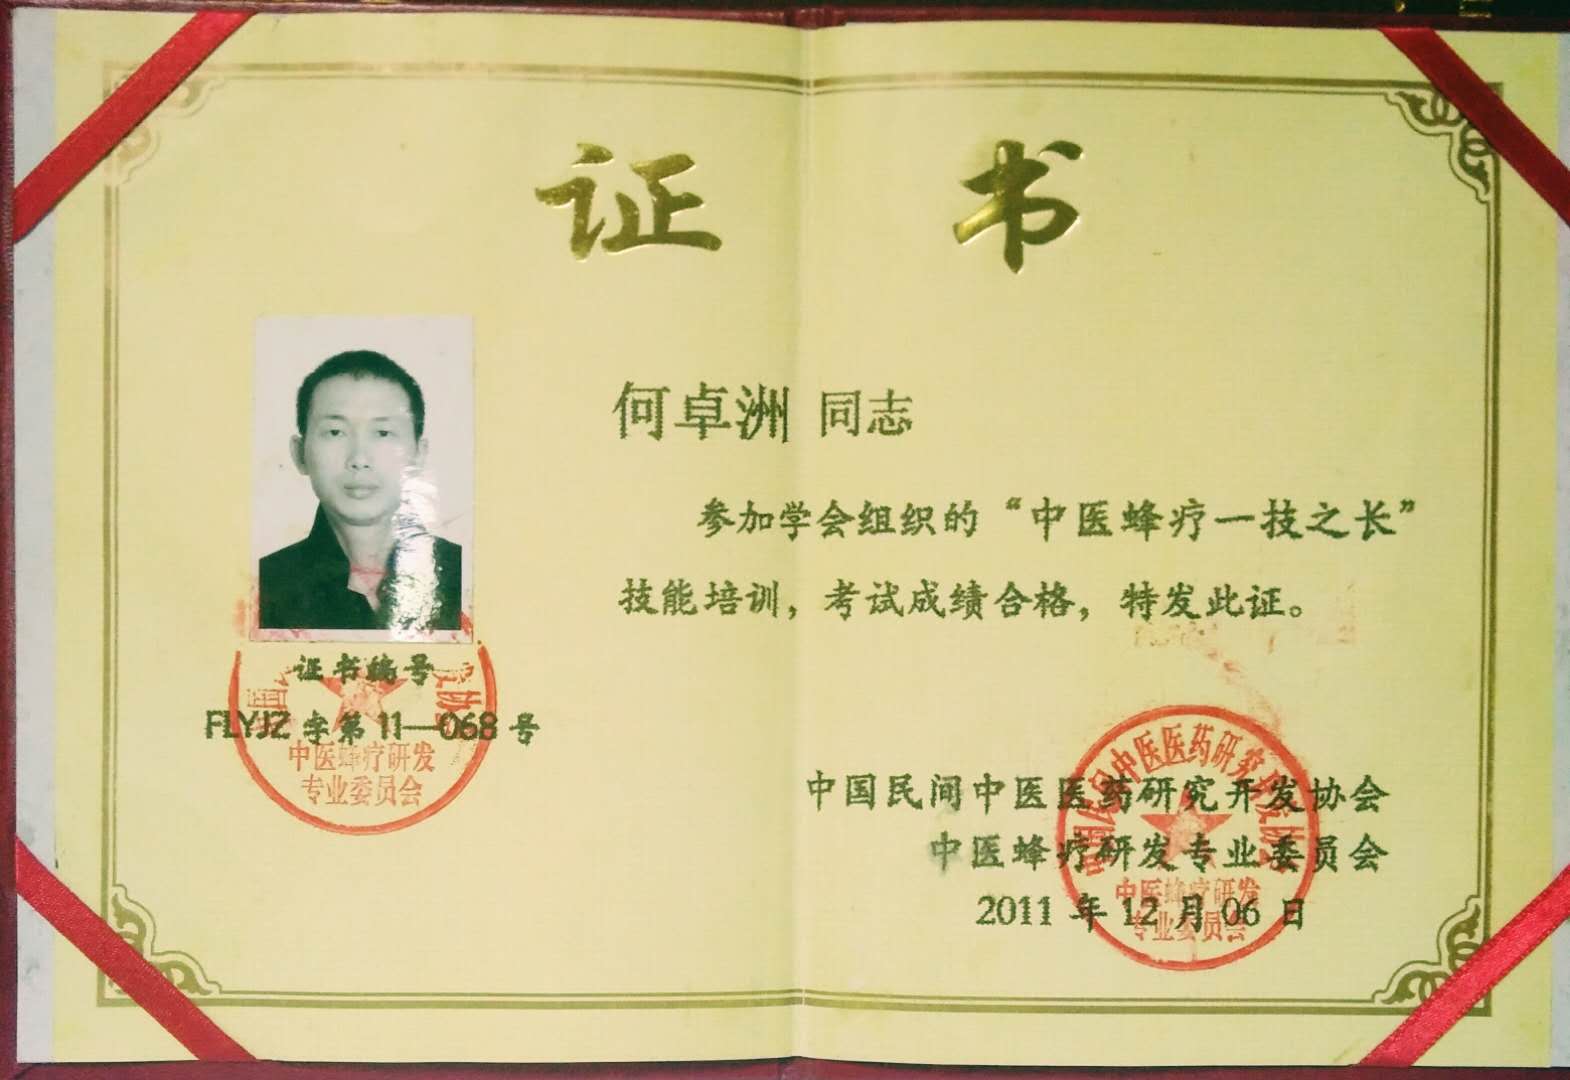 证书
何卓洲 同志
参加学会组织的“中医蜂疗一技之长”
技能培训，考试成绩合格，特发此证。
证书编号
FLYJZ 字第 11—068 号
中医蜂疗研发
专业委员会
中国民间中医医药研究开发协会
中医蜂疗研发专业委员会
2011 年 12 月 06 日
中国民间中医医药研究开发协会
中医蜂疗研发
专业委员会